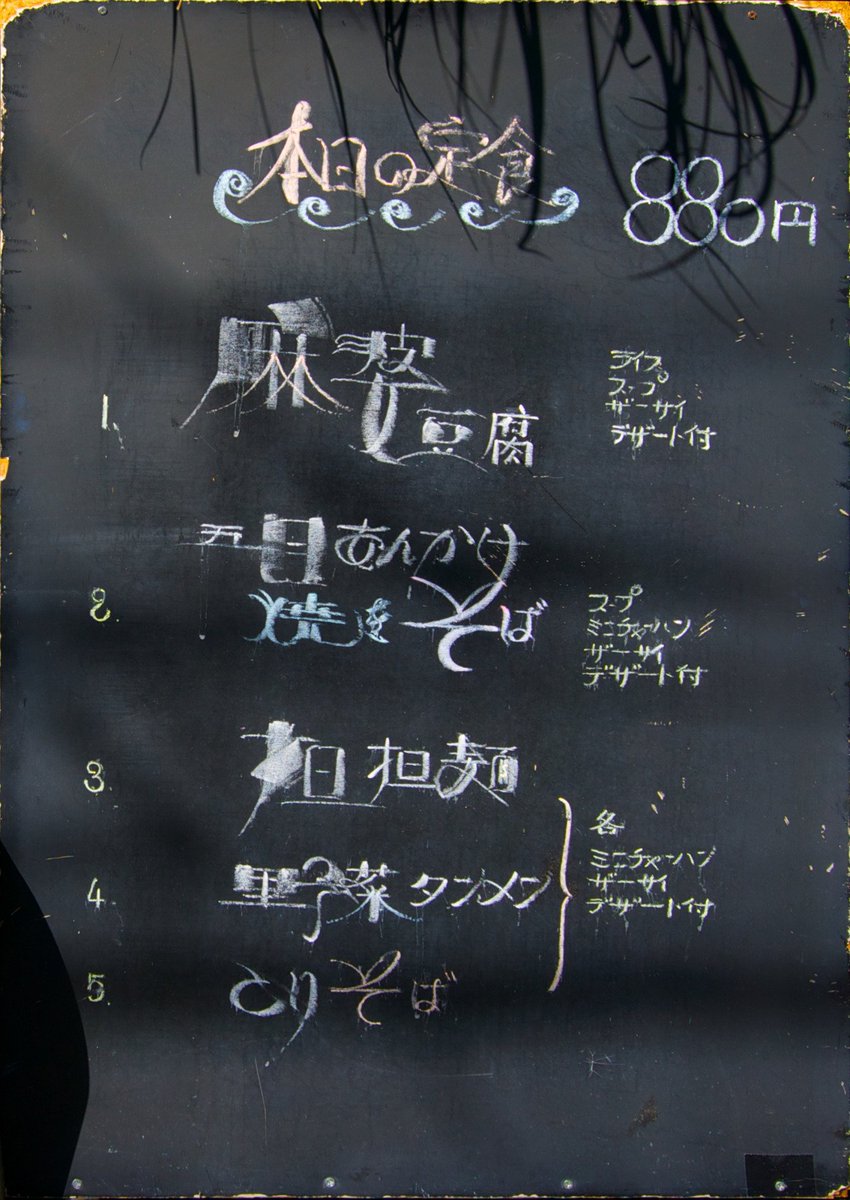 本日の定食
880円
1.
麻婆豆腐
ライス
スープ
ザーサイ
デザート付
2.
五目あんかけ
焼きそば
スープ
ミニチャーハン
ザーサイ
デザート付
3
担担麺
4
野菜タンメン
5.
とりそば
各
ミニチャーハン
ザーサイ
デザート付